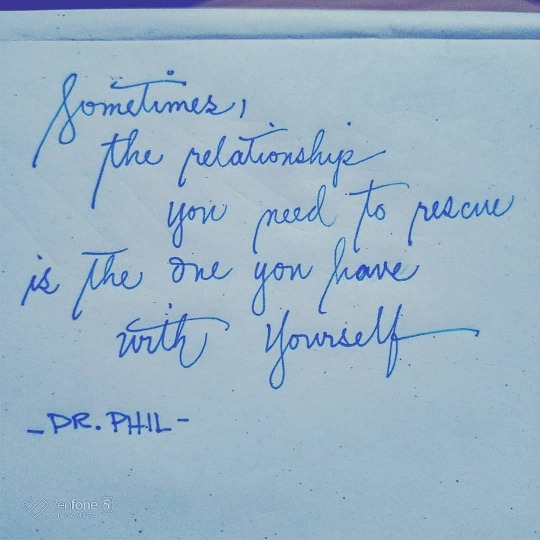 Sometimes,
the relationship
you need to rescue
is the one you have
with yourself
-DR. PHIL-
Zenfone 5